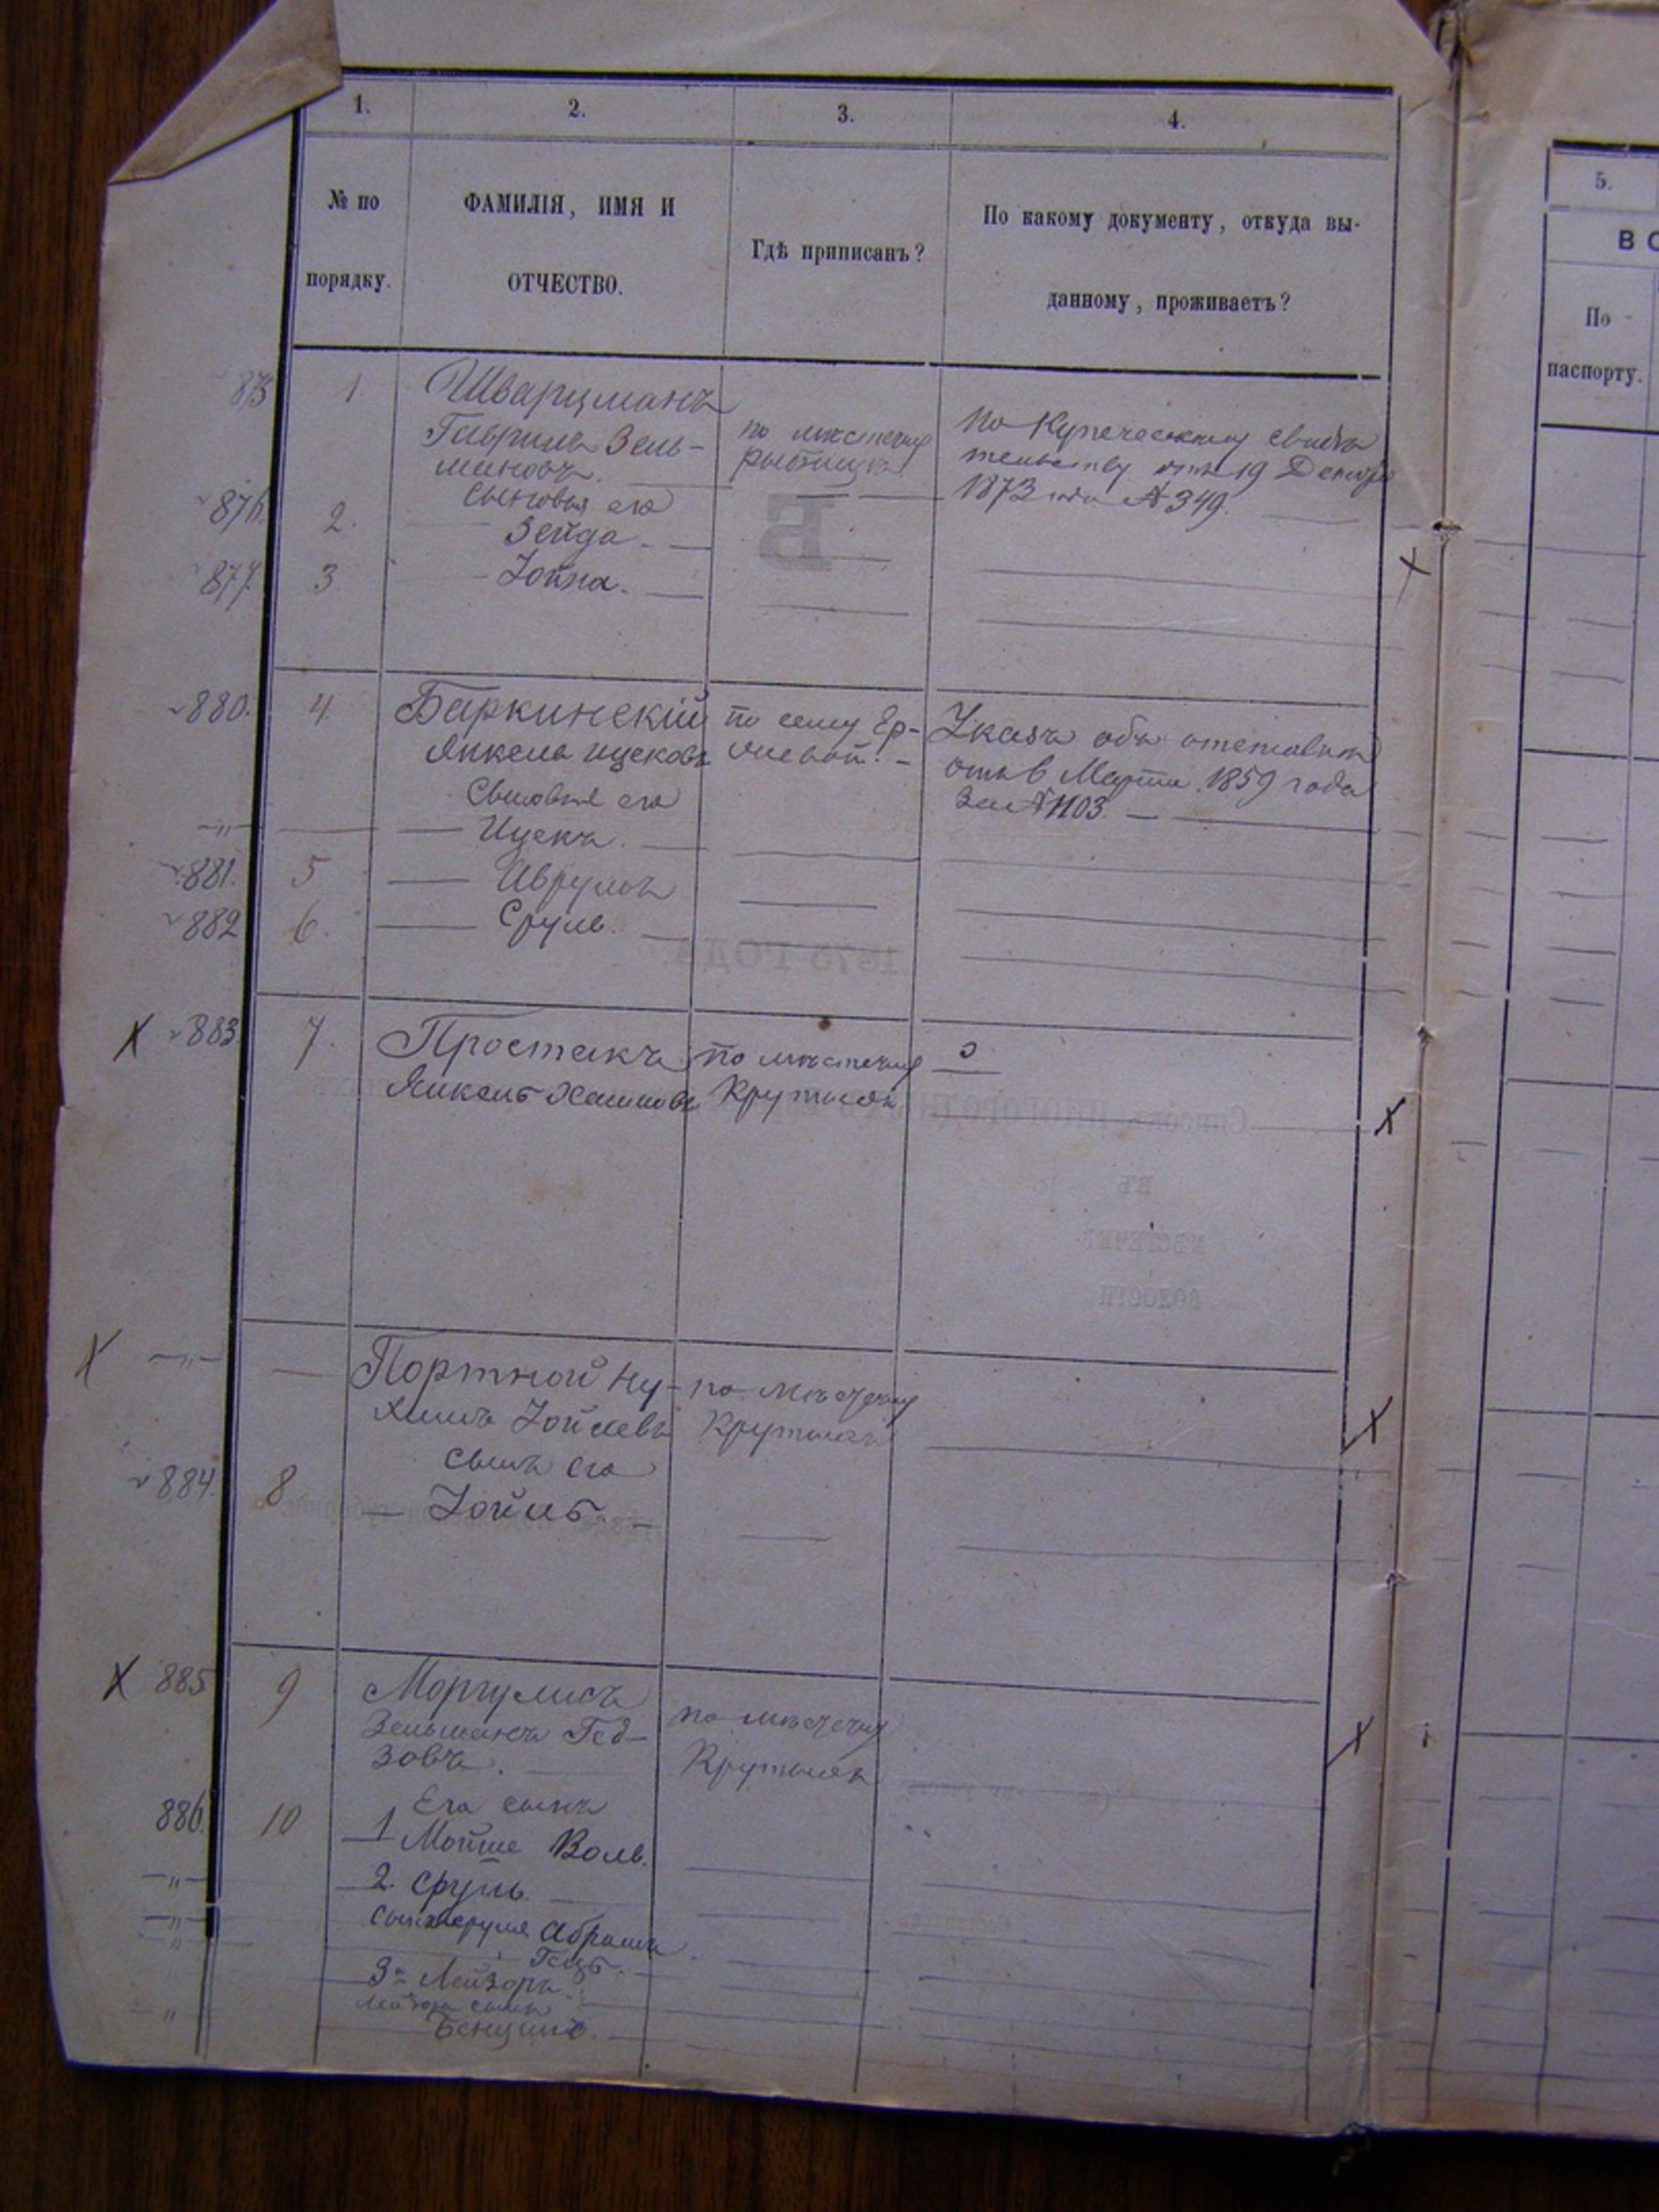 1.
2.
3.
4.
5.
№ по
порядку.
ФАМИЛІЯ, ИМЯ И
ОТЧЕСТВО.
Гдѣ приписанъ?
По какому документу, откуда вы-
данному, проживаетъ?
ВО
По
паспорту.
1
Шварцманъ
Гаврила Зель-
мановъ.
по мѣстечку
Рыбница
По Купеческому свидѣ
тельству отъ 19 Декабря
1873 года № 349.
876
2.
Сыновья его
Зейда
877
3
Іойна.
880.
4.
Баркинскій
Янкель Ицковъ
по селу Ер-
Указъ объ отставки
отъ 6 Марта 1859 года
за № 1103.
Сыновья его
Ицекъ.
881.
5
Аврумъ
882
6.
Сруль.
1875 ГОДА
883
7.
Простакъ
Янкель Хаимовъ
по мѣстечку
Крутыхъ
Списокъ
ВЪ
МѢСТЕЧКѢ
ВОЛОСТИ
Портной Ну-
химъ Іойлевъ
по мѣстечку
Крутыхъ
сынъ его
884.
8
Іойль.
885
9
Моргулисъ
Зельманъ Гед-
зовъ.
по мѣстечку
Крутыхъ
Его сынъ
886.
10
1 Мойше Волв.
2. Сруль.
сынъ Сруля Абрамъ
Гецъ.
3й Лейзоръ.
Лейзора сынъ
Бенцинъ.